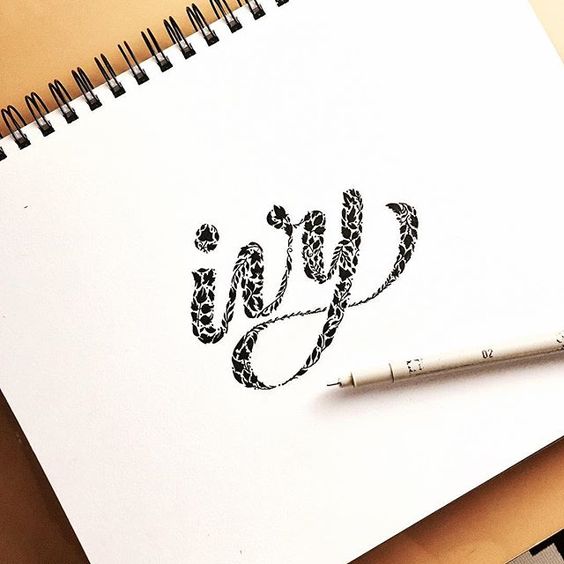 ivy
02